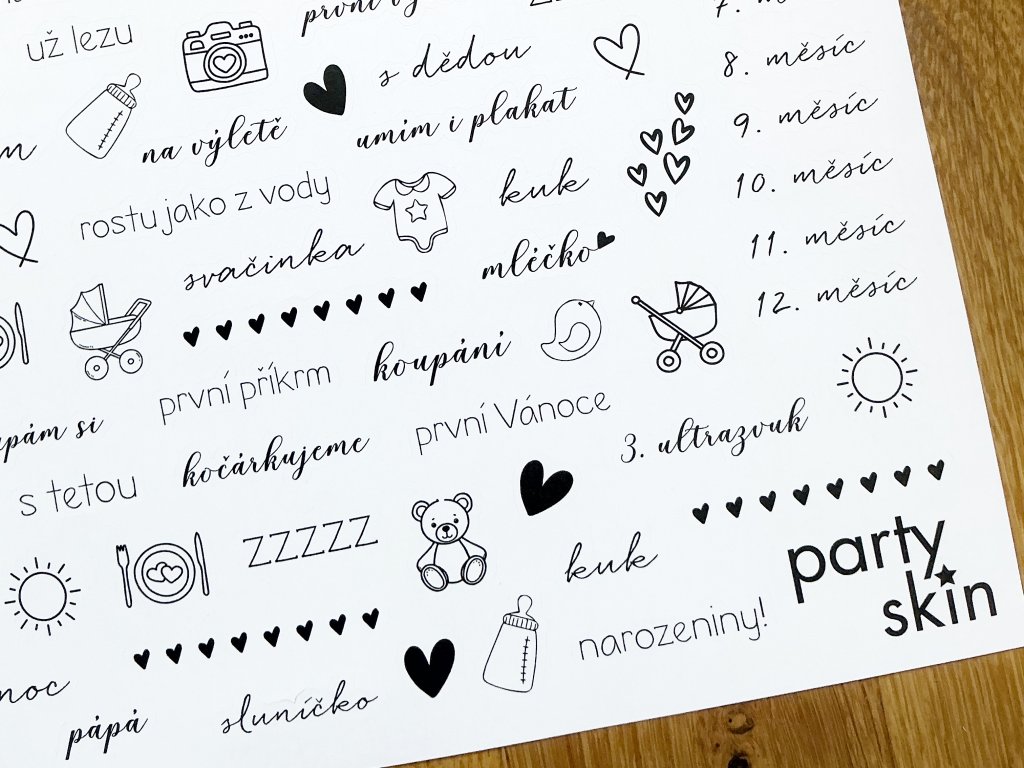 už lezu
první
s dědou
na výletě
umím i plakat
rostu jako z vody
kuk
svačinka
mléčko
první příkrm
koupání
první Vánoce
kočárkujeme
s tetou
zzzzz
kuk
narozeniny!
pápá
sluníčko
7.
8. měsíc
9. měsíc
10. měsíc
11. měsíc
12. měsíc
3. ultrazvuk
party
skin